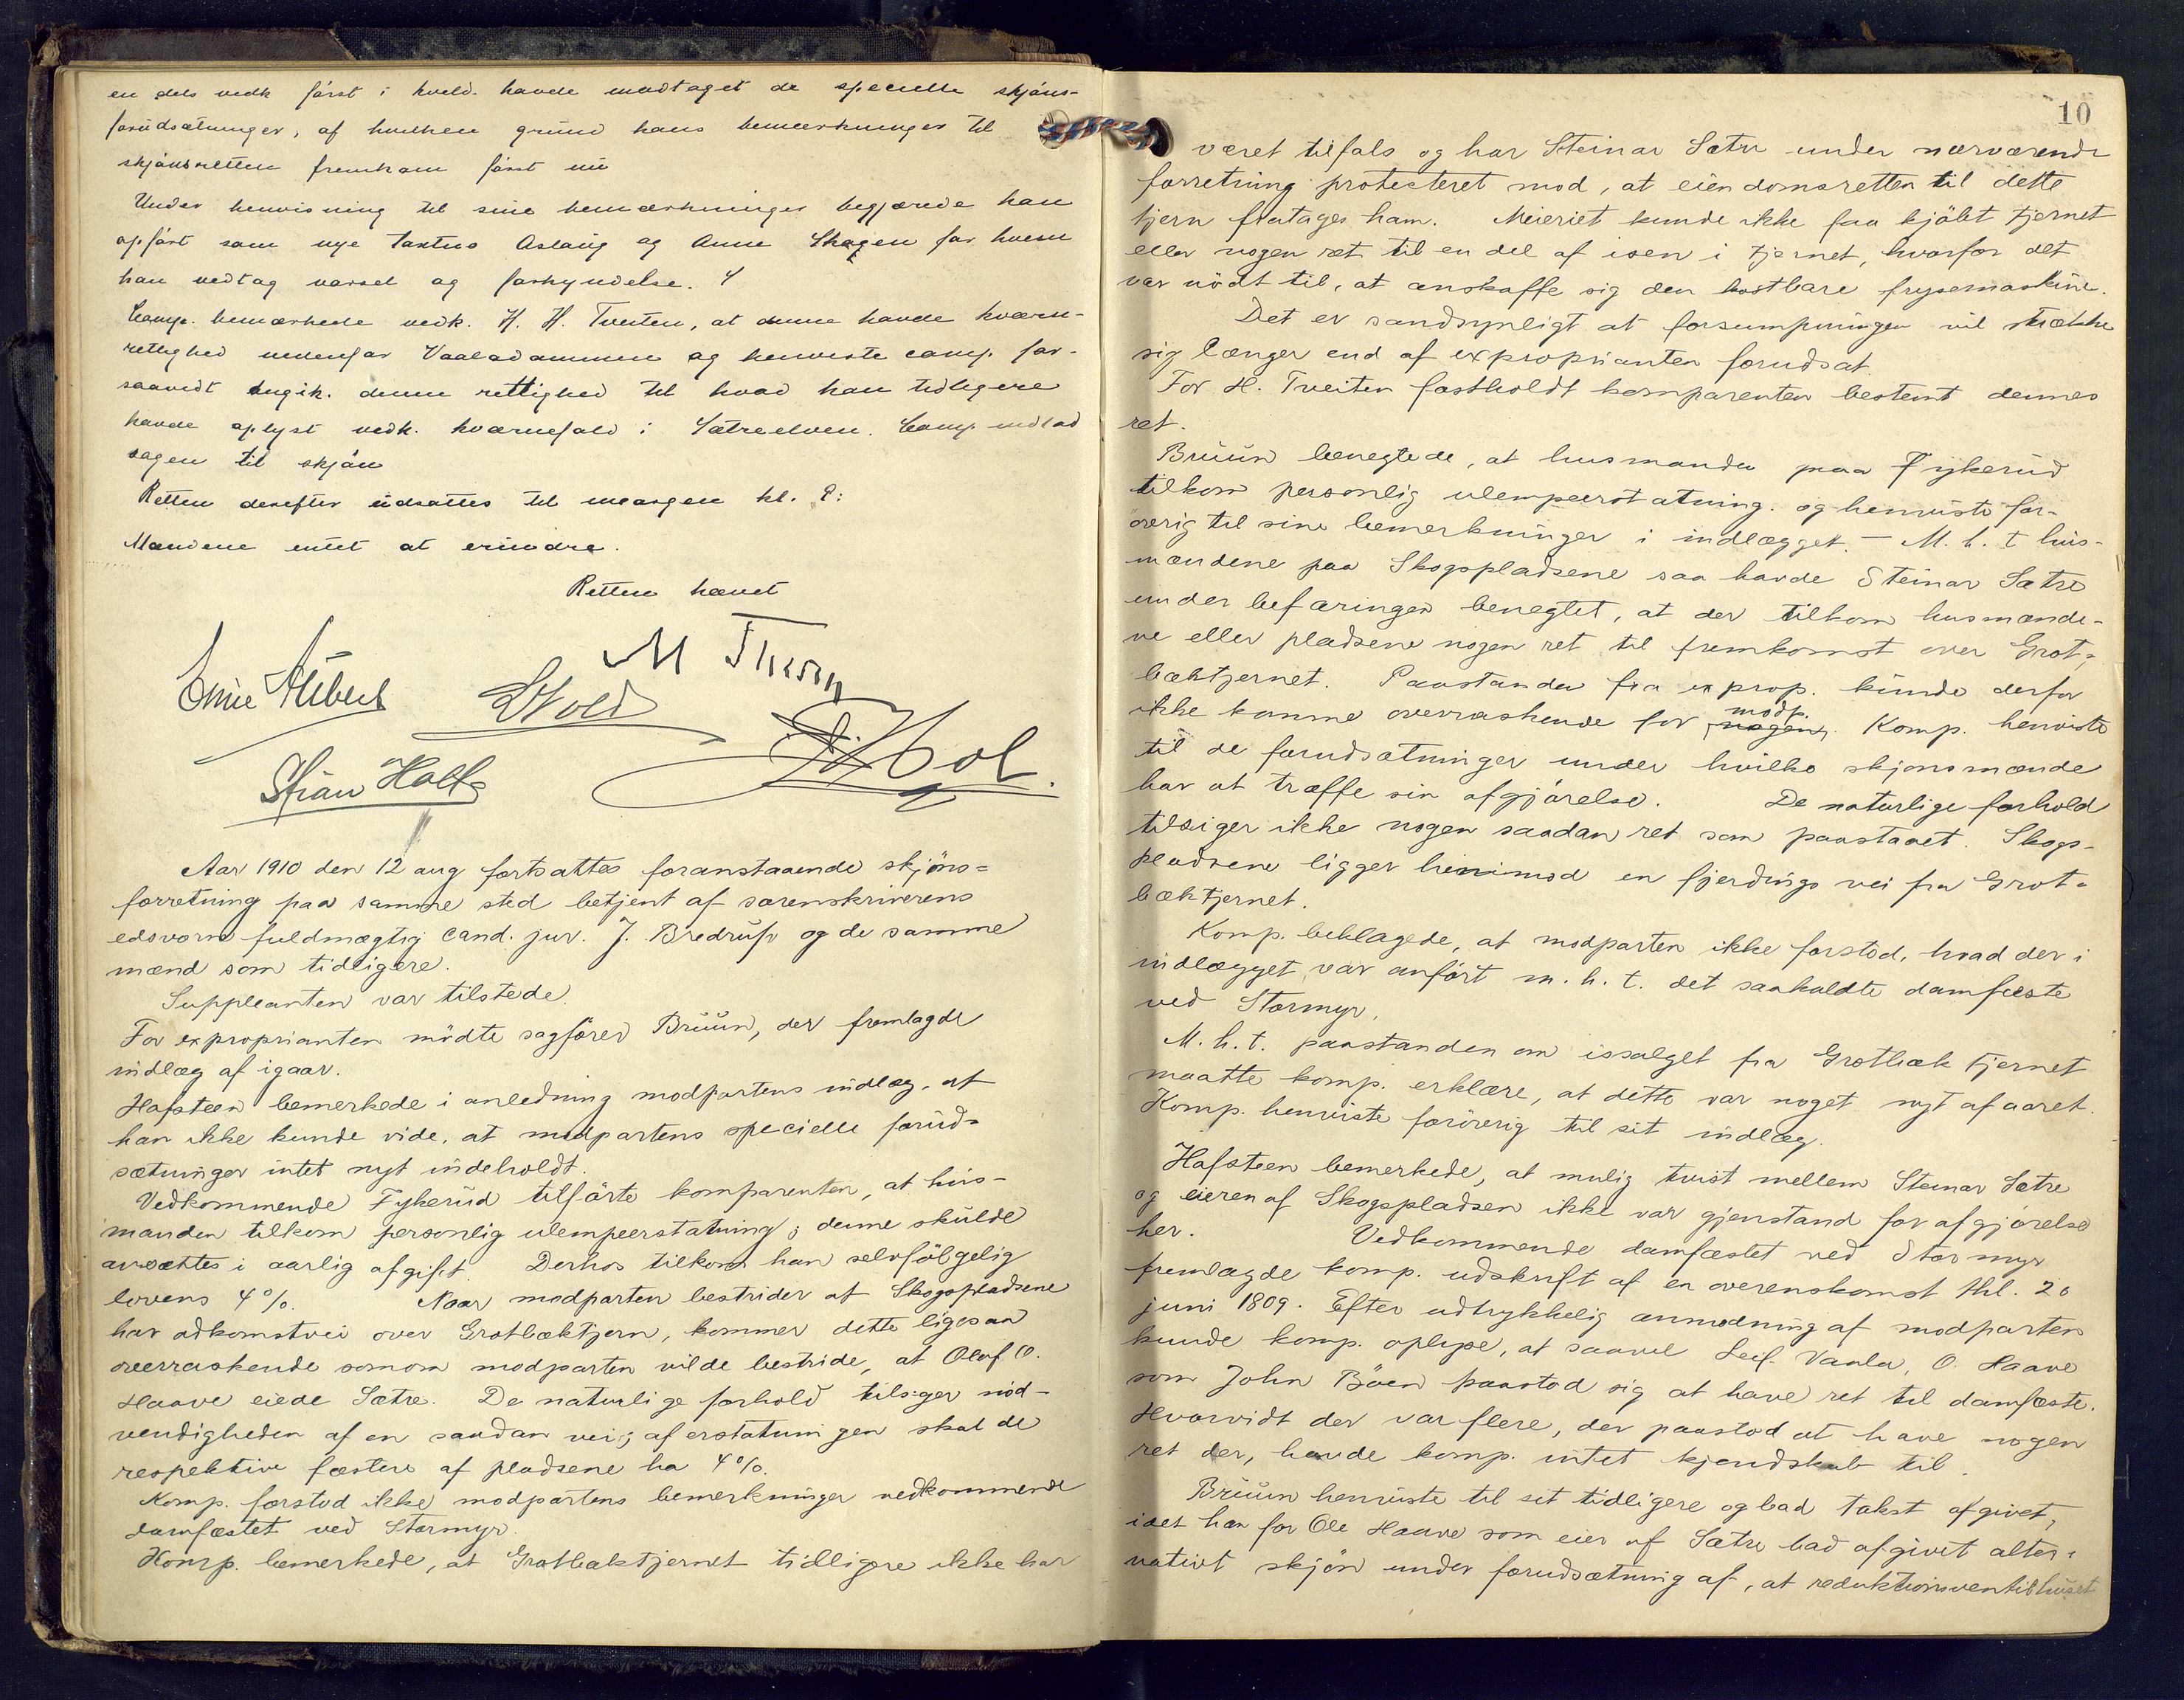 en dels vedk først i kveld. havde modtaget de specielle skjøns-
forudsætninger, af hvilken grund hans bemærkninger til
skjønsretten fremkom først nu
Under henvisning til sine bemærkninger begjærede han
opført som nye taxtno Aslaug og Anne Skogen for hvem
han vedtog varsel og forkyndelse.
Comp. bemærkede vedk. H. H. Tveiten, at denne havde kværn-
rettighed nedenfor Vaaladammen og henviste comp. for-
saavidt angik. denne rettighed til hvad han tidligere
havde oplyst vedk. kværnefald i Sætreelven. Comp indlod
sagen til skjøn
Retten derefter udsattes til morgen kl. 9:
Mændene intet at erindre.
Retten hævet
M Thesen
Stian Holt
Aar 1910 den 12 aug fortsattes foranstaaende skjøns=
forretning paa samme sted betjent af sorenskriverens
edsvorne fuldmægtig cand. jur. J. Bredrup og de samme
mænd som tidligere.
Suppleanten var tilstede.
For exproprianten mødte sagfører Bruun, der fremlagde
indlæg af igaar.
Hafsteen bemerkede i anledning modpartens indlæg, at
han ikke kunde vide, at modpartens specielle forud=
sætninger intet nyt indeholdt.
Vedkommende Fykerud tilførte komparenten, at hus-
manden tilkom personlig ulempeerstatning; denne skulde
ansættes i aarlig afgift. Derhos tilkom han selvfølgelig
lovens 4%. Naar modparten bestrider at Skogspladsene
har adkomstvei over Grotbæktjern, kommer dette ligesaa
overraskende somom modparten vilde bestride, at Oluf O.
Haave eiede Sætre. De naturlige forhold tilsiger nød-
vendigheden af en saadan vei; af erstatningen skal de
respektive fæstere af pladsene ha 4%.
Komp. forstod ikke modpartens bemerkninger vedkommende
damfæstet ved Stormyr.
Komp. bemerkede, at Grotbæktjernet tidligere ikke har
10
været tilfals og har Steinar Sætre under nærværende
forretning protesteret mod, at eiendomsretten til dette
tjern fratages ham. Meieriet kunde ikke faa kjøbt tjernet
eller nogen ret til en del af isen i tjernet, hvorfor det
var nødt til, at anskaffe sig den kostbare frysemaskine.
Det er sandsynligt at forsumpningen vil strække
sig længer end af exproprianten forudsat.
For H. Tveiten fastholdt komparenten bestemt dennes
ret.
Bruun benegtede, at husmanden paa Fykerud
tilkom personlig ulempeerstatning. og henviste for-
øvrig til sine bemerkninger i indlægget. – M. h. t hus-
mændene paa Skogspladsene saa havde Steinar Sætre
under befaringen benegtet, at der tilkom husmænde-
ne eller pladsene nogen ret til fremkomst over Grot-
bæktjernet. Paastanden fra exprop. kunde derfor
ikke komme overraskende for nogen modp. Komp. henviste
til de forudsætninger under hvilke skjønsmændene
har at træffe sin afgjørelse. De naturlige forhold
tilsiger ikke nogen saadan ret som paastaaet. Skogs-
pladsene ligger henimod en fjerdings vei fra Grot-
bæktjernet.
Komp. beklagede, at modparten ikke forstod, hvad der i
indlægget var anført m. h. t. det saakaldte damfæste
ved Stormyr.
M. h. t. paastanden om issalget fra Grotbæk tjernet
maatte komp. erklære, at dette var noget nyt af aaret.
Komp. henviste forøvrig til sit indlæg.
Hafsteen bemerkede, at mulig tvist mellem Steinar Sætre
og eieren af Skogspladsen ikke var gjenstand for afgjørelse
her. Vedkommende damfæstet ved Stormyr
fremlagde komp. udskrift af en overenskomst thl. 20
juni 1809. Efter udtrykkelig anmodning af modparten
kunde komp. oplyse, at saavel Leif Vaala, O. Haave
som John Bøen paastod sig at have ret til damfæste.
Hvorvidt der var flere, der paastod at have nogen
ret der, havde komp. intet kjendskab til.
Bruun henviste til sit tidligere og bad takst afgivet,
idet han for Ole Haave som eier af Sætre bad afgivet alter-
nativt skjøn under forudsætning af, at reduktionsventilhuset